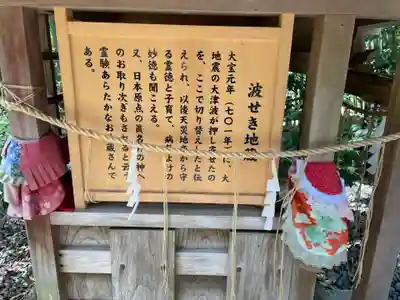 波せき地蔵
大宝元年(七〇一年)に、大
地震の大津波が押し寄せたの
を、ここで切り替えしたと伝
えられ、以後天災地変から守
る霊徳と子育て、病気よけの
妙徳も聞こえる。
又、日本原点の眞名井の神へ
のお取り次ぎもされると云う
霊験あらたかなお地蔵さんで
ある。